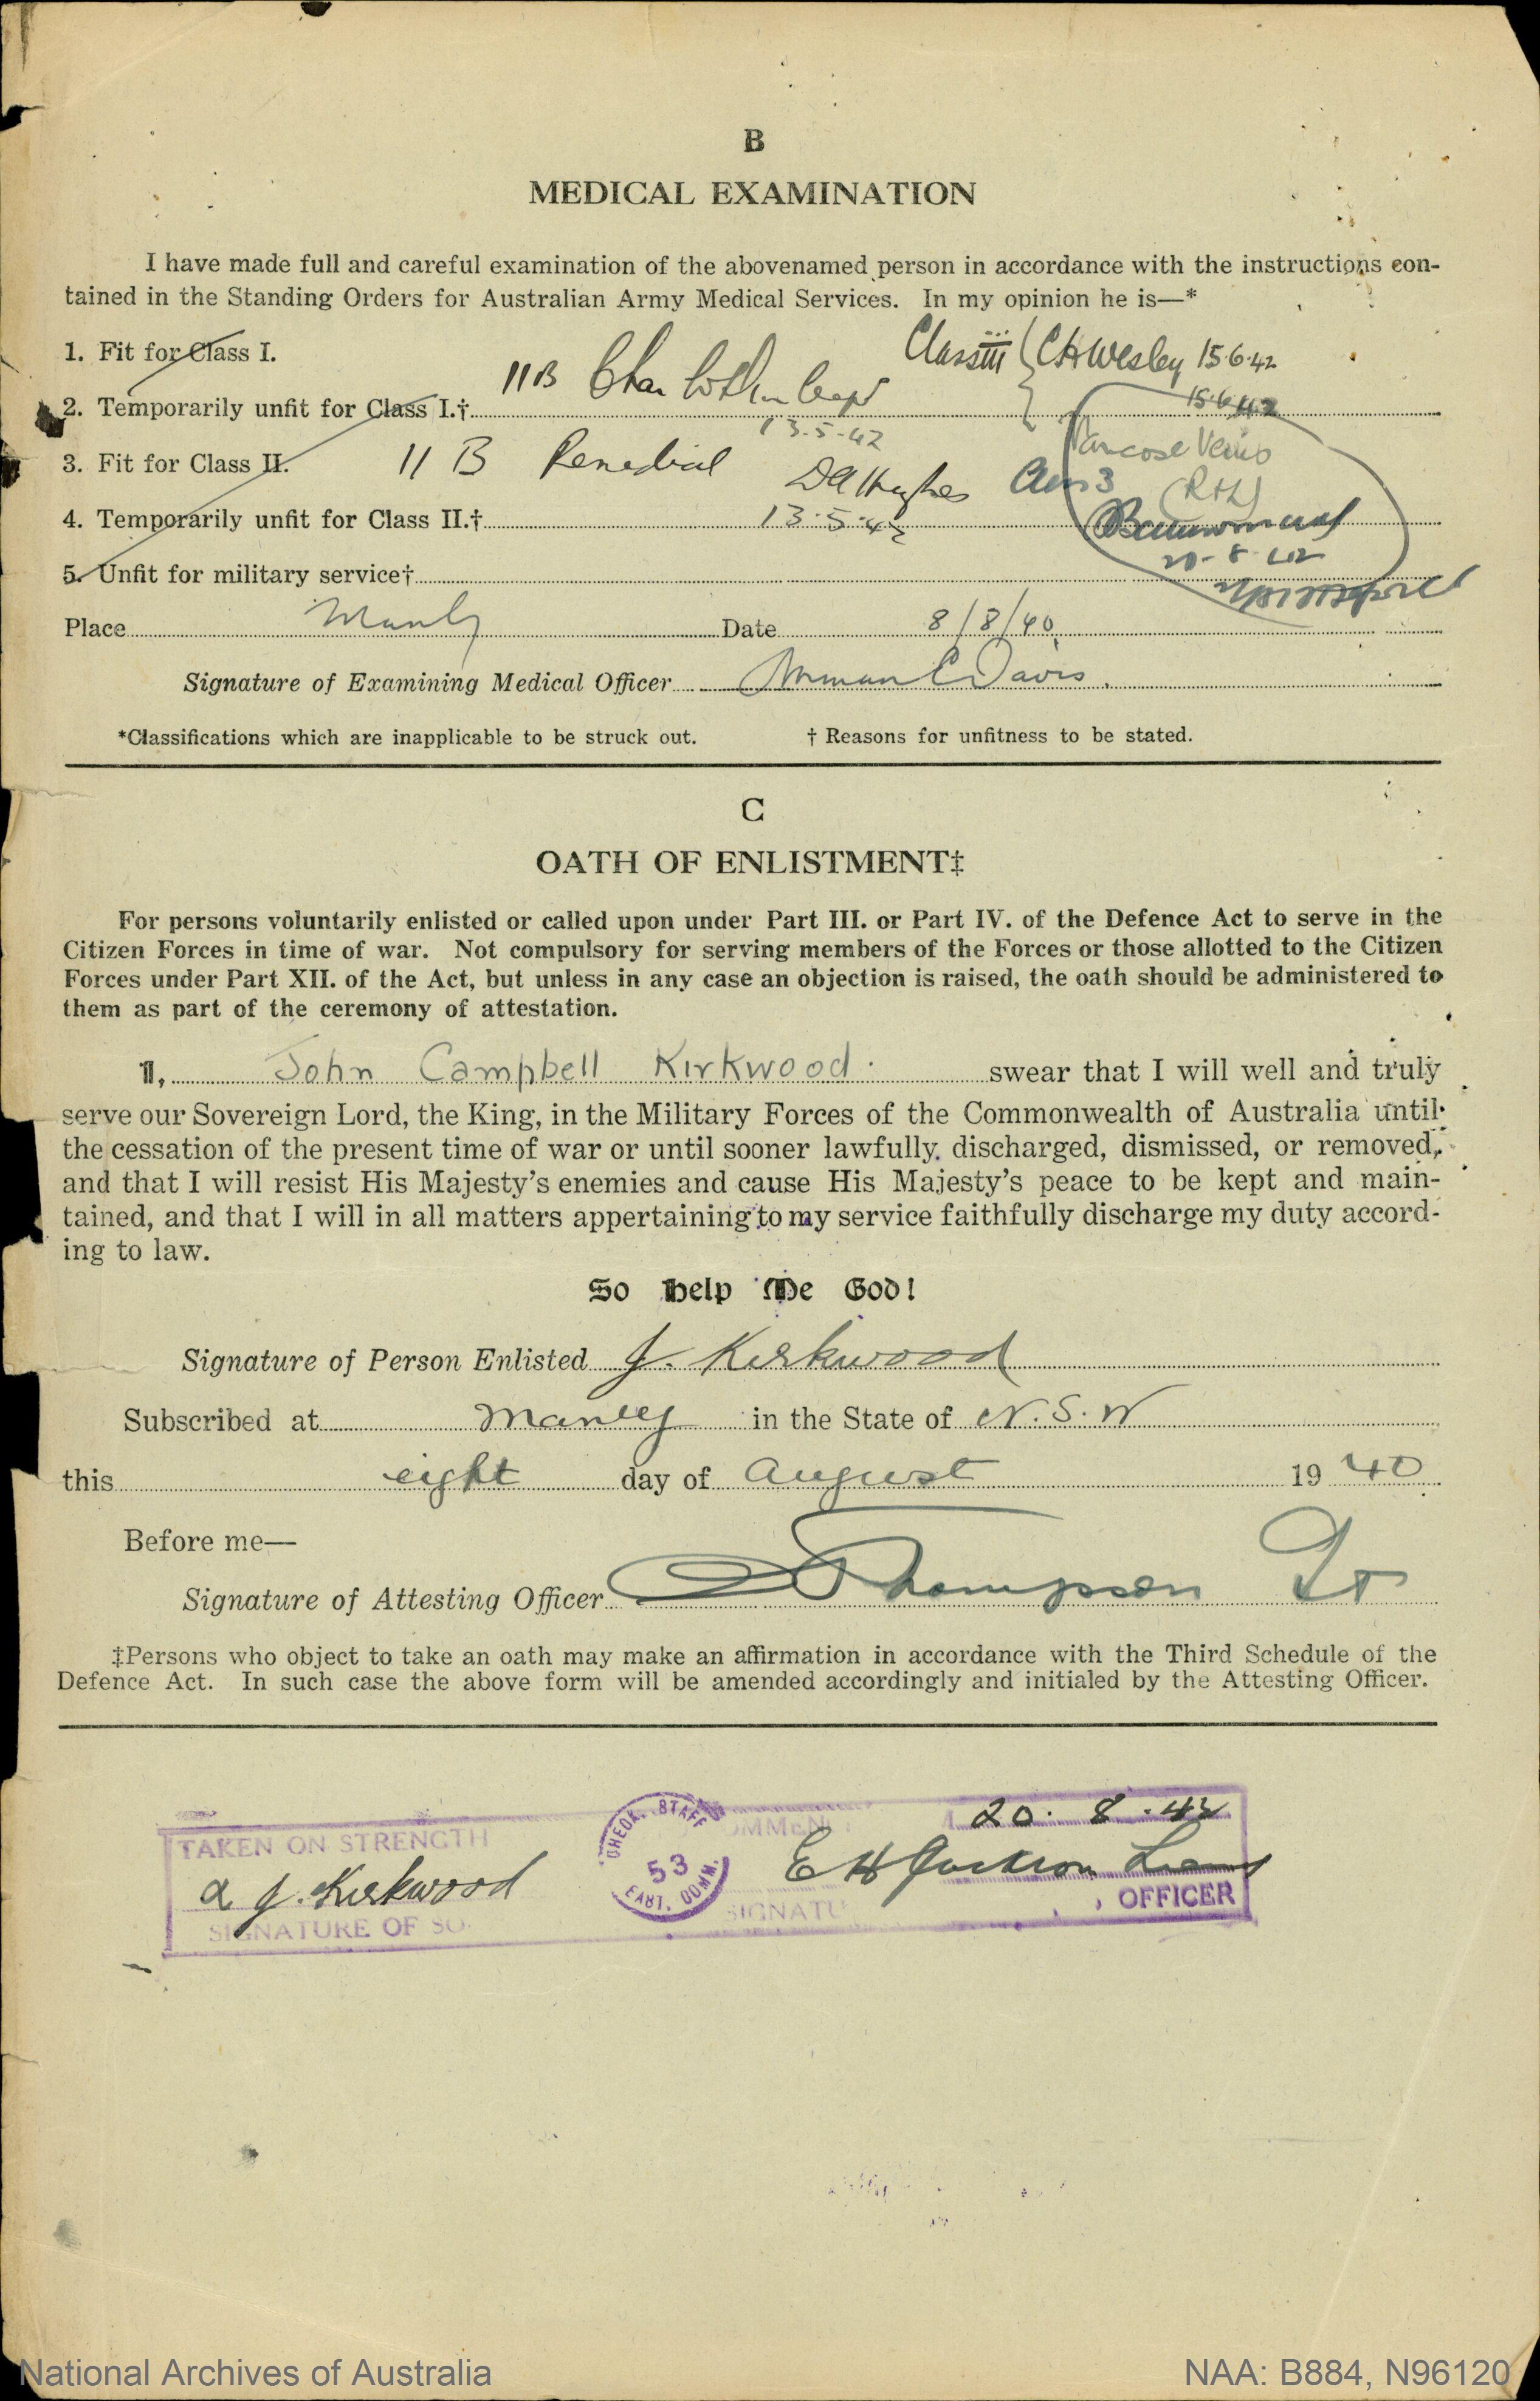 B
MEDICAL EXAMINATION
I have made full and careful examination of the abovenamed person in accordance with the instructions con-
tained in the Standing Orders for Australian Army Medical Services. In my opinion he is—*
1. Fit for Class I.
Class iii C H Wesley 15.6.42
11B
15.6.42
2. Temporarily unfit for Class I.†
13.5.42
Varicose Veins
3. Fit for Class II.
11 B Remedial D A Hughes
(R+L)
4. Temporarily unfit for Class II.†
13.5.42
20-8-42
5. Unfit for military service†
Place Manly Date 8/8/40
Signature of Examining Medical Officer Norman C Davis.
*Classifications which are inapplicable to be struck out. † Reasons for unfitness to be stated.
C
OATH OF ENLISTMENT‡
For persons voluntarily enlisted or called upon under Part III. or Part IV. of the Defence Act to serve in the
Citizen Forces in time of war. Not compulsory for serving members of the Forces or those allotted to the Citizen
Forces under Part XII. of the Act, but unless in any case an objection is raised, the oath should be administered to
them as part of the ceremony of attestation.
I, John Campbell Kirkwood. swear that I will well and truly
serve our Sovereign Lord, the King, in the Military Forces of the Commonwealth of Australia until
the cessation of the present time of war or until sooner lawfully discharged, dismissed, or removed,
and that I will resist His Majesty's enemies and cause His Majesty's peace to be kept and main-
tained, and that I will in all matters appertaining to my service faithfully discharge my duty accord-
ing to law.
So Help Me God!
Signature of Person Enlisted J. Kirkwood
Subscribed at Manly in the State of N.S.W
this eight day of August 1940
Before me—
Signature of Attesting Officer Thompson Lt
‡Persons who object to take an oath may make an affirmation in accordance with the Third Schedule of the
Defence Act. In such case the above form will be amended accordingly and initialed by the Attesting Officer.
20.8.42
TAKEN ON STRENGTH
CHECK. STAFF
53
EAST. COMM.
J. Kirkwood
E H Jackson Lieut
OFFICER
SIGNATURE OF SO
SIGNATU
National Archives of Australia
NAA: B884, N96120